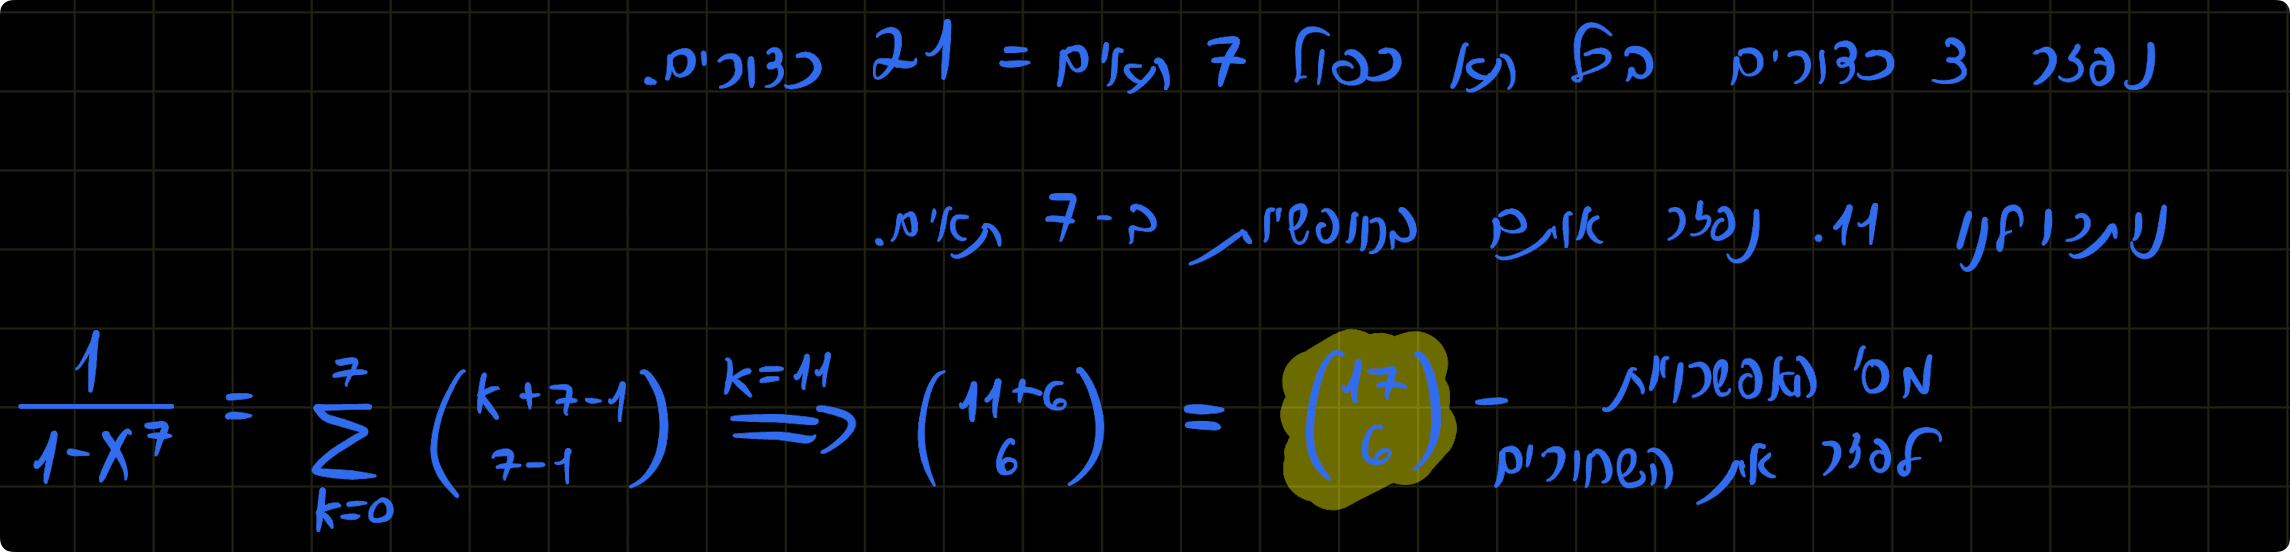 נפזר 3 כדורים בכל תא כפול 7 תאים = 21 כדורים.
נותרו לנו 11. נפזר אותם בחופשיות ב-7 תאים.
1/(1-X^7) = Σ_{k=0}^{7} (k+7-1 / 7-1) ⟹^{k=11} (11+6 / 6) = (17 / 6) - מס' האפשרויות
לפזר את השחורים